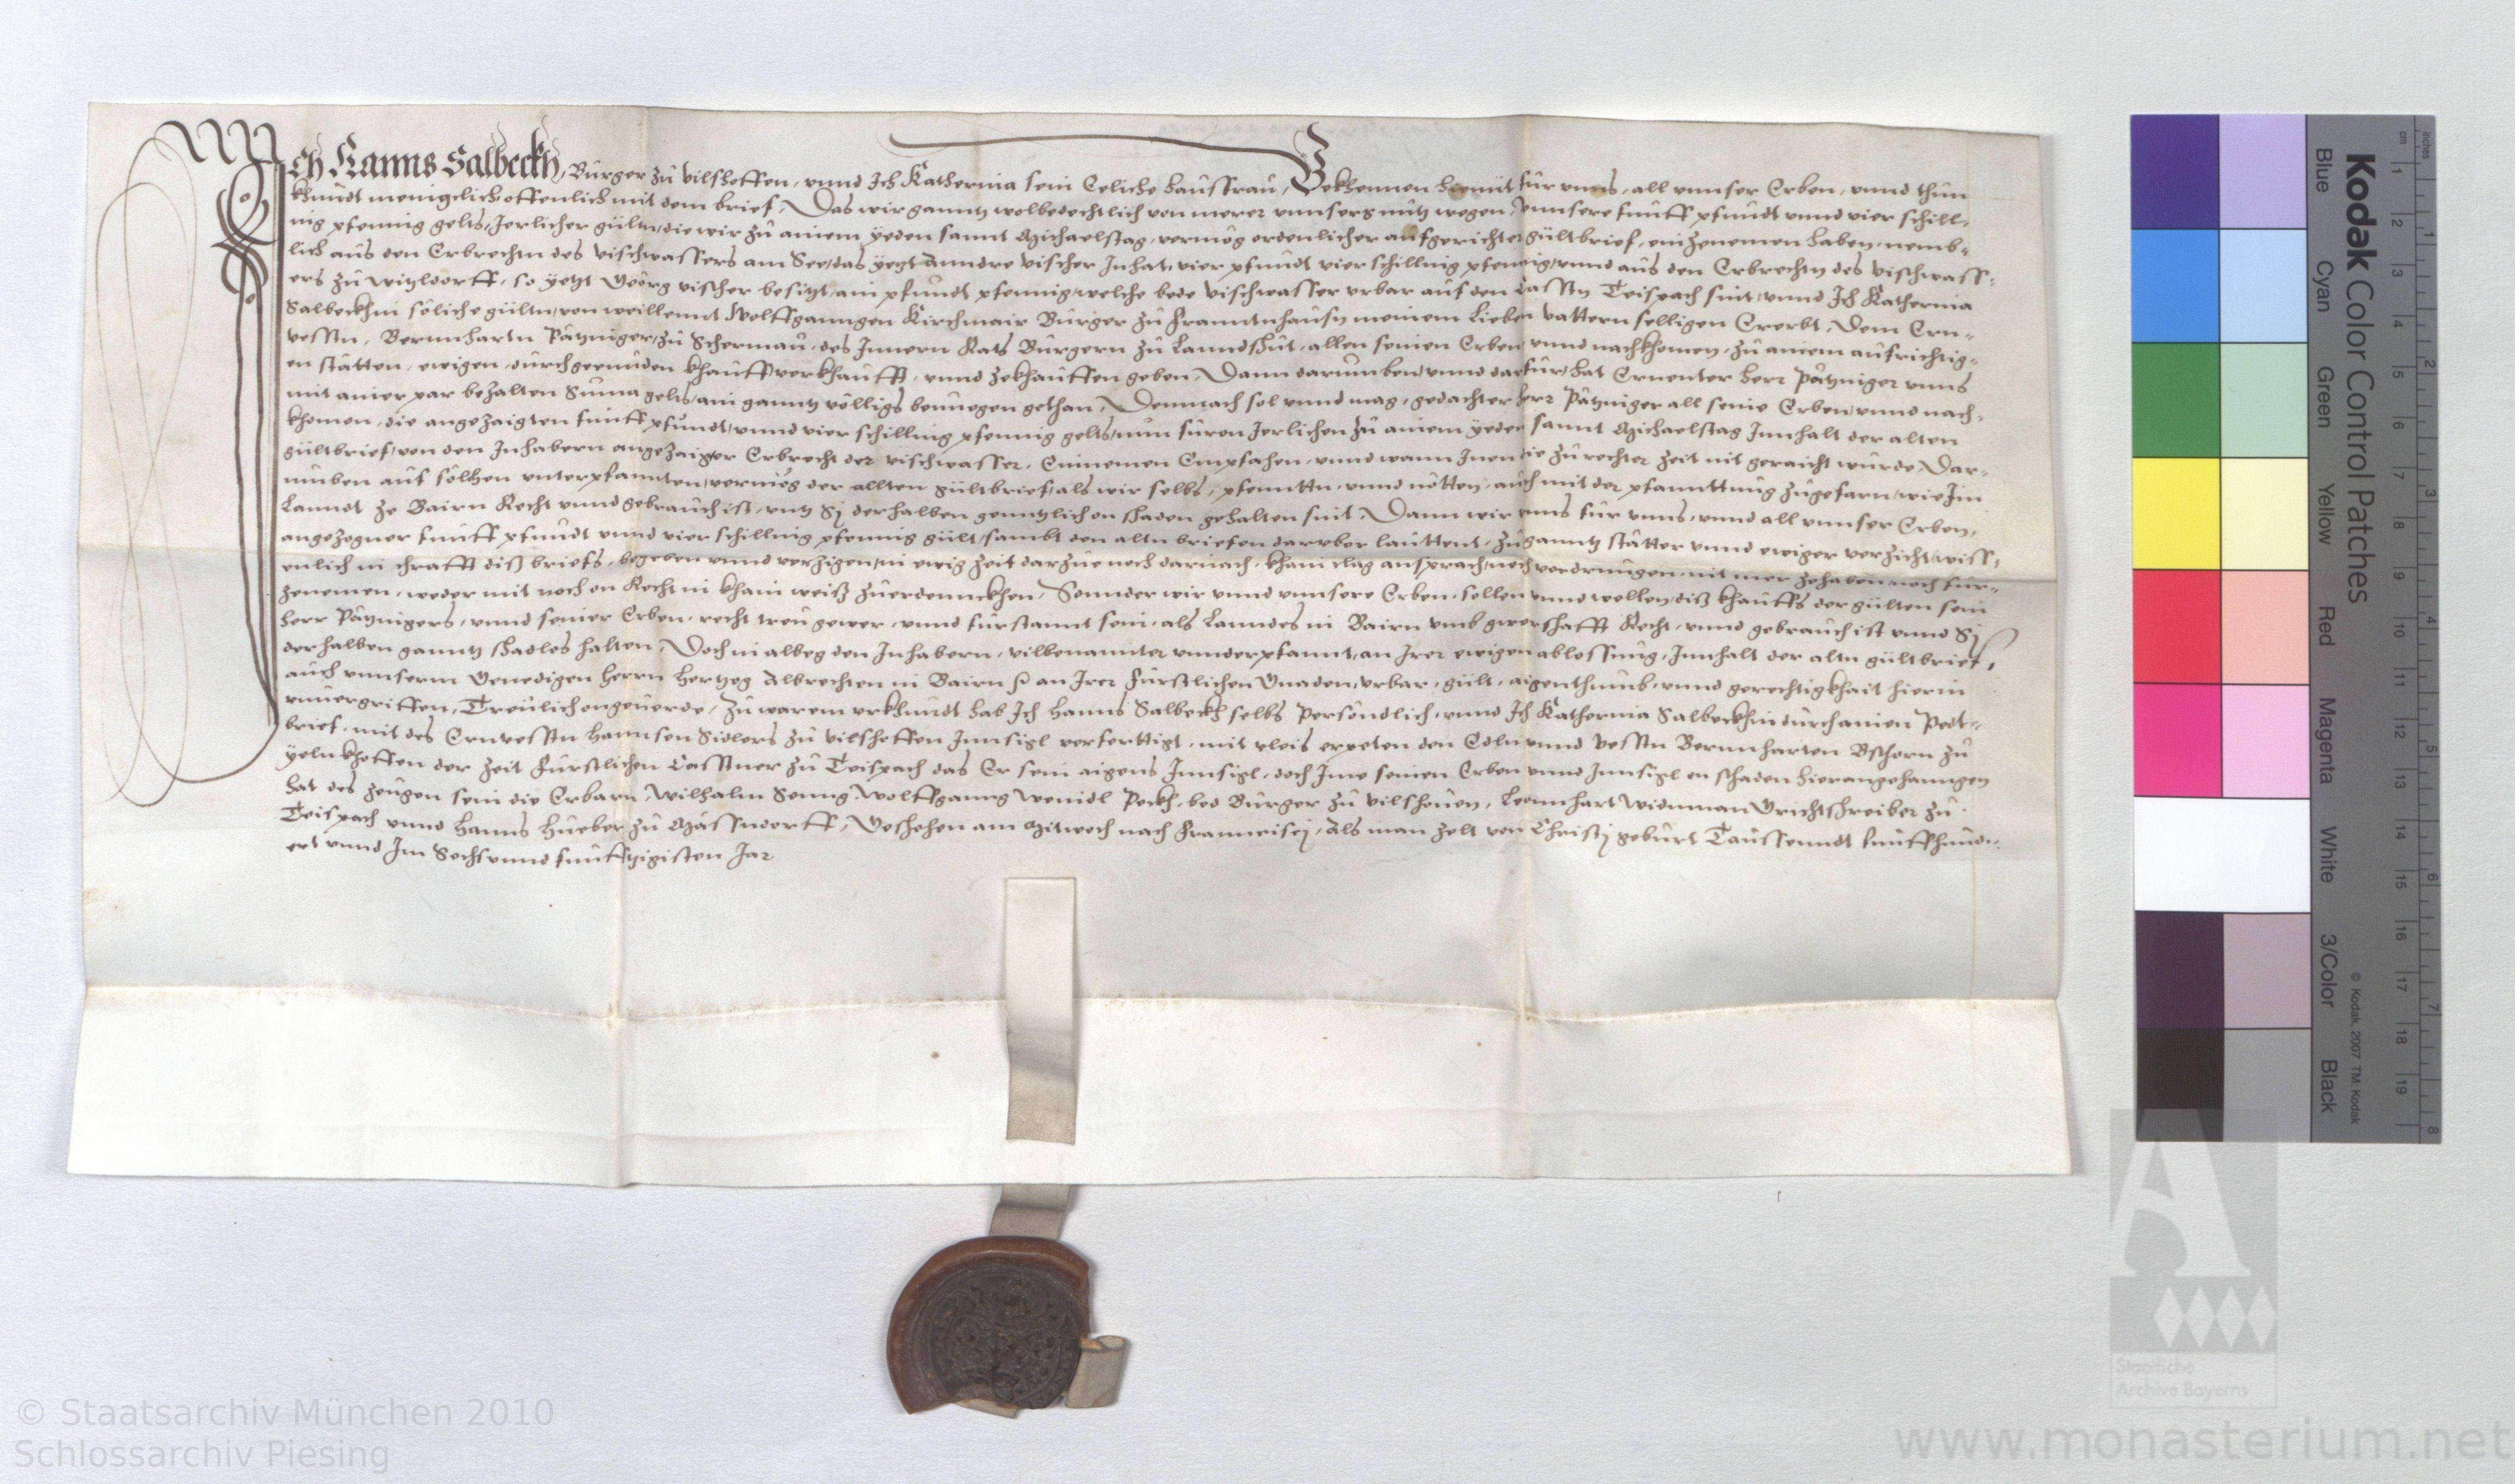 Ich Hanns Salbeckh, Burger zu Vilshoffen, vnnd Ich Katherina sein Eeliche haussfrau, Bekhennen hiemit für vnns, all vnnser Erben, vnnd thun
khundt menigclich offenlich mit dem brief, Das wir ganntz wolbedechtlich von merer vnnsers nutz wegen, vnnsere funff pfundt vnnd vier schill-
ing pfennig gelts, Jerlicher gültn, die wir zu ainem yeden sannt Michaelstag, vermög ordenlicher aufgerichter gültbrief, einzenemen haben, nemb-
lich aus den Erbrechtn des vischwassers am See, das yezt Anndre vischer Inhat, vier pfundt vier schilling pfennig, vnnd aus den Erbrechtn des vischwass-
ers zu Witzldorff, so yetzt Geörg vischer besitzt, ain pfundt pfennig, welche bede vischwasser vrbar auf den Casstn Teispach sint, vnnd Ich Katherina
Salbeckhin soliche gültn, von weillennt Wolffganngen Kirchmair Burger zu Franntnhausn meinem Lieben vattern selligen Ererbt, Dem Ern-
vesstn, Bernnhartn Pätzniger, zu Schermau, des Innern Rats Burgern zu Lanndshut, allen seinen Erben vnnd nachkhomen, zu ainem aufrichtig-
en stätten, ewigen, durchgeennden khauff verkhaufft, vnnd zekhauffen geben, Dann darumben, vnnd darfür, hat Ernenter herr Pätzniger vnns
mit ainer par bezalten Suma gelts, ain ganntz völligs benuegen gethan, Demnach sol vnnd mag, gedachter herr Pätzniger all seine Erben, vnnd nach-
khomen, die angezaigten funff pfundt, vnnd vier schilling pfennig gelts, nun füron Jerlichen zu ainem yeden sannt Michaelstag Innhalt der alten
gültbrief, von den Inhabern angezaigter Erbrecht der vischwasser, Einnemen Empfahen, vnnd wann Inen die zu rechter zeit nit geraicht wurde Dar-
umben auf solhen vnterpfannten, vermög der allten gültbrief, als wir selbs, pfenntn, vnnd nötten, auch mit der pfannttung zugefarn, wie Im
Lanndt ze Bairn Recht vnnd gebrauch ist, vntz Sj derhalben genntzlich on schaden gehalten sint, Dann wir vnns für vnns, vnnd all vnnser Erben,
angezogner funff pfundt vnnd vier schilling pfennig gült, sambt den altn briefen darüber lauttent, zu ganntz stätter vnnd ewiger verzicht, wiss-
enlich in chrafft diß briefs, begeben vnnd verzigen, in ewig zeit darzue noch darnach, kham clag ansprach, noch vordrungen, nit mer zehaben, noch für-
zenemen, weder mit noch on Recht in khain weiß zuerdennckhen, Sonnder wir vnnd vnnsere Erben, sollen vnnd wellen, diß khauffs der gülten sein
herr Pätznigers, vnnd seiner Erben, recht treu gewer, vnnd fürstannt sein, als Lanndes in Bairn vmb gwerschafft Recht, vnnd gebrauch ist vnnd Sj
derhalben ganntz schadlos halten, Doch in albeg den Inhabern, vilbenannter vnnderpfannt, an Irer ewigen ablossung, Innhalt der altn gültbrief,
auch vnnserm Genedigen herrn hertzog Albrechten in Bairn an Irer Fürstlichen Gnaden, vrbar, gült, aigenthumb, vnnd gerechtigkhait hierin
vnuergriffen, Treulich ongeuerde, Zu warem vrkhundt hab Ich Hanns Salbeckh selbs Persöndlich, vnnd Ich Katherina Salbeckhin durch ainen Pedt-
brief, mit des Ernvesstn Hannsen Sidlers zu Vilshoffen Innsigl verferttigt, mit vleis erpeten den Edln vnnd vesstn Bernnharten Bschorn zu
der zeit Fürstlichen Casstner zu Teispach das Er sein aigens Innsigl, doch Ime seinen Erben vnnd Innsigl on schaden hieran gehanngen
hat des zeugen sein die Erbarn, Wilhalm Senng, Wolffganng Weindl Peckh, bed Burger zu Vilshouen, Leonnhart Widnman Grichtschreiber zu
Teispach vnnd Hanns Hueber zu Massndorff, Geschehen am Mitwoch nach Francisci, Als man zelt von Christj geburt Taussenndt funffhund-
ert vnnd Im Sechsvnndfunfftzigisten Jar
Kodak Color Control Patches
Blue
Cyan
Green
Yellow
Red
Magenta
White
3/Color
Black
© Kodak, 2007 TM: Kodak
cm 1 2 3 4 5 6 7 8 9 10 11 12 13 14 15 16 17 18 19
inches 1 2 3 4 5 6 7 8
A
Staatliche
Archive Bayerns
© Staatsarchiv München 2010
Schlossarchiv Piesing
www.monasterium.net